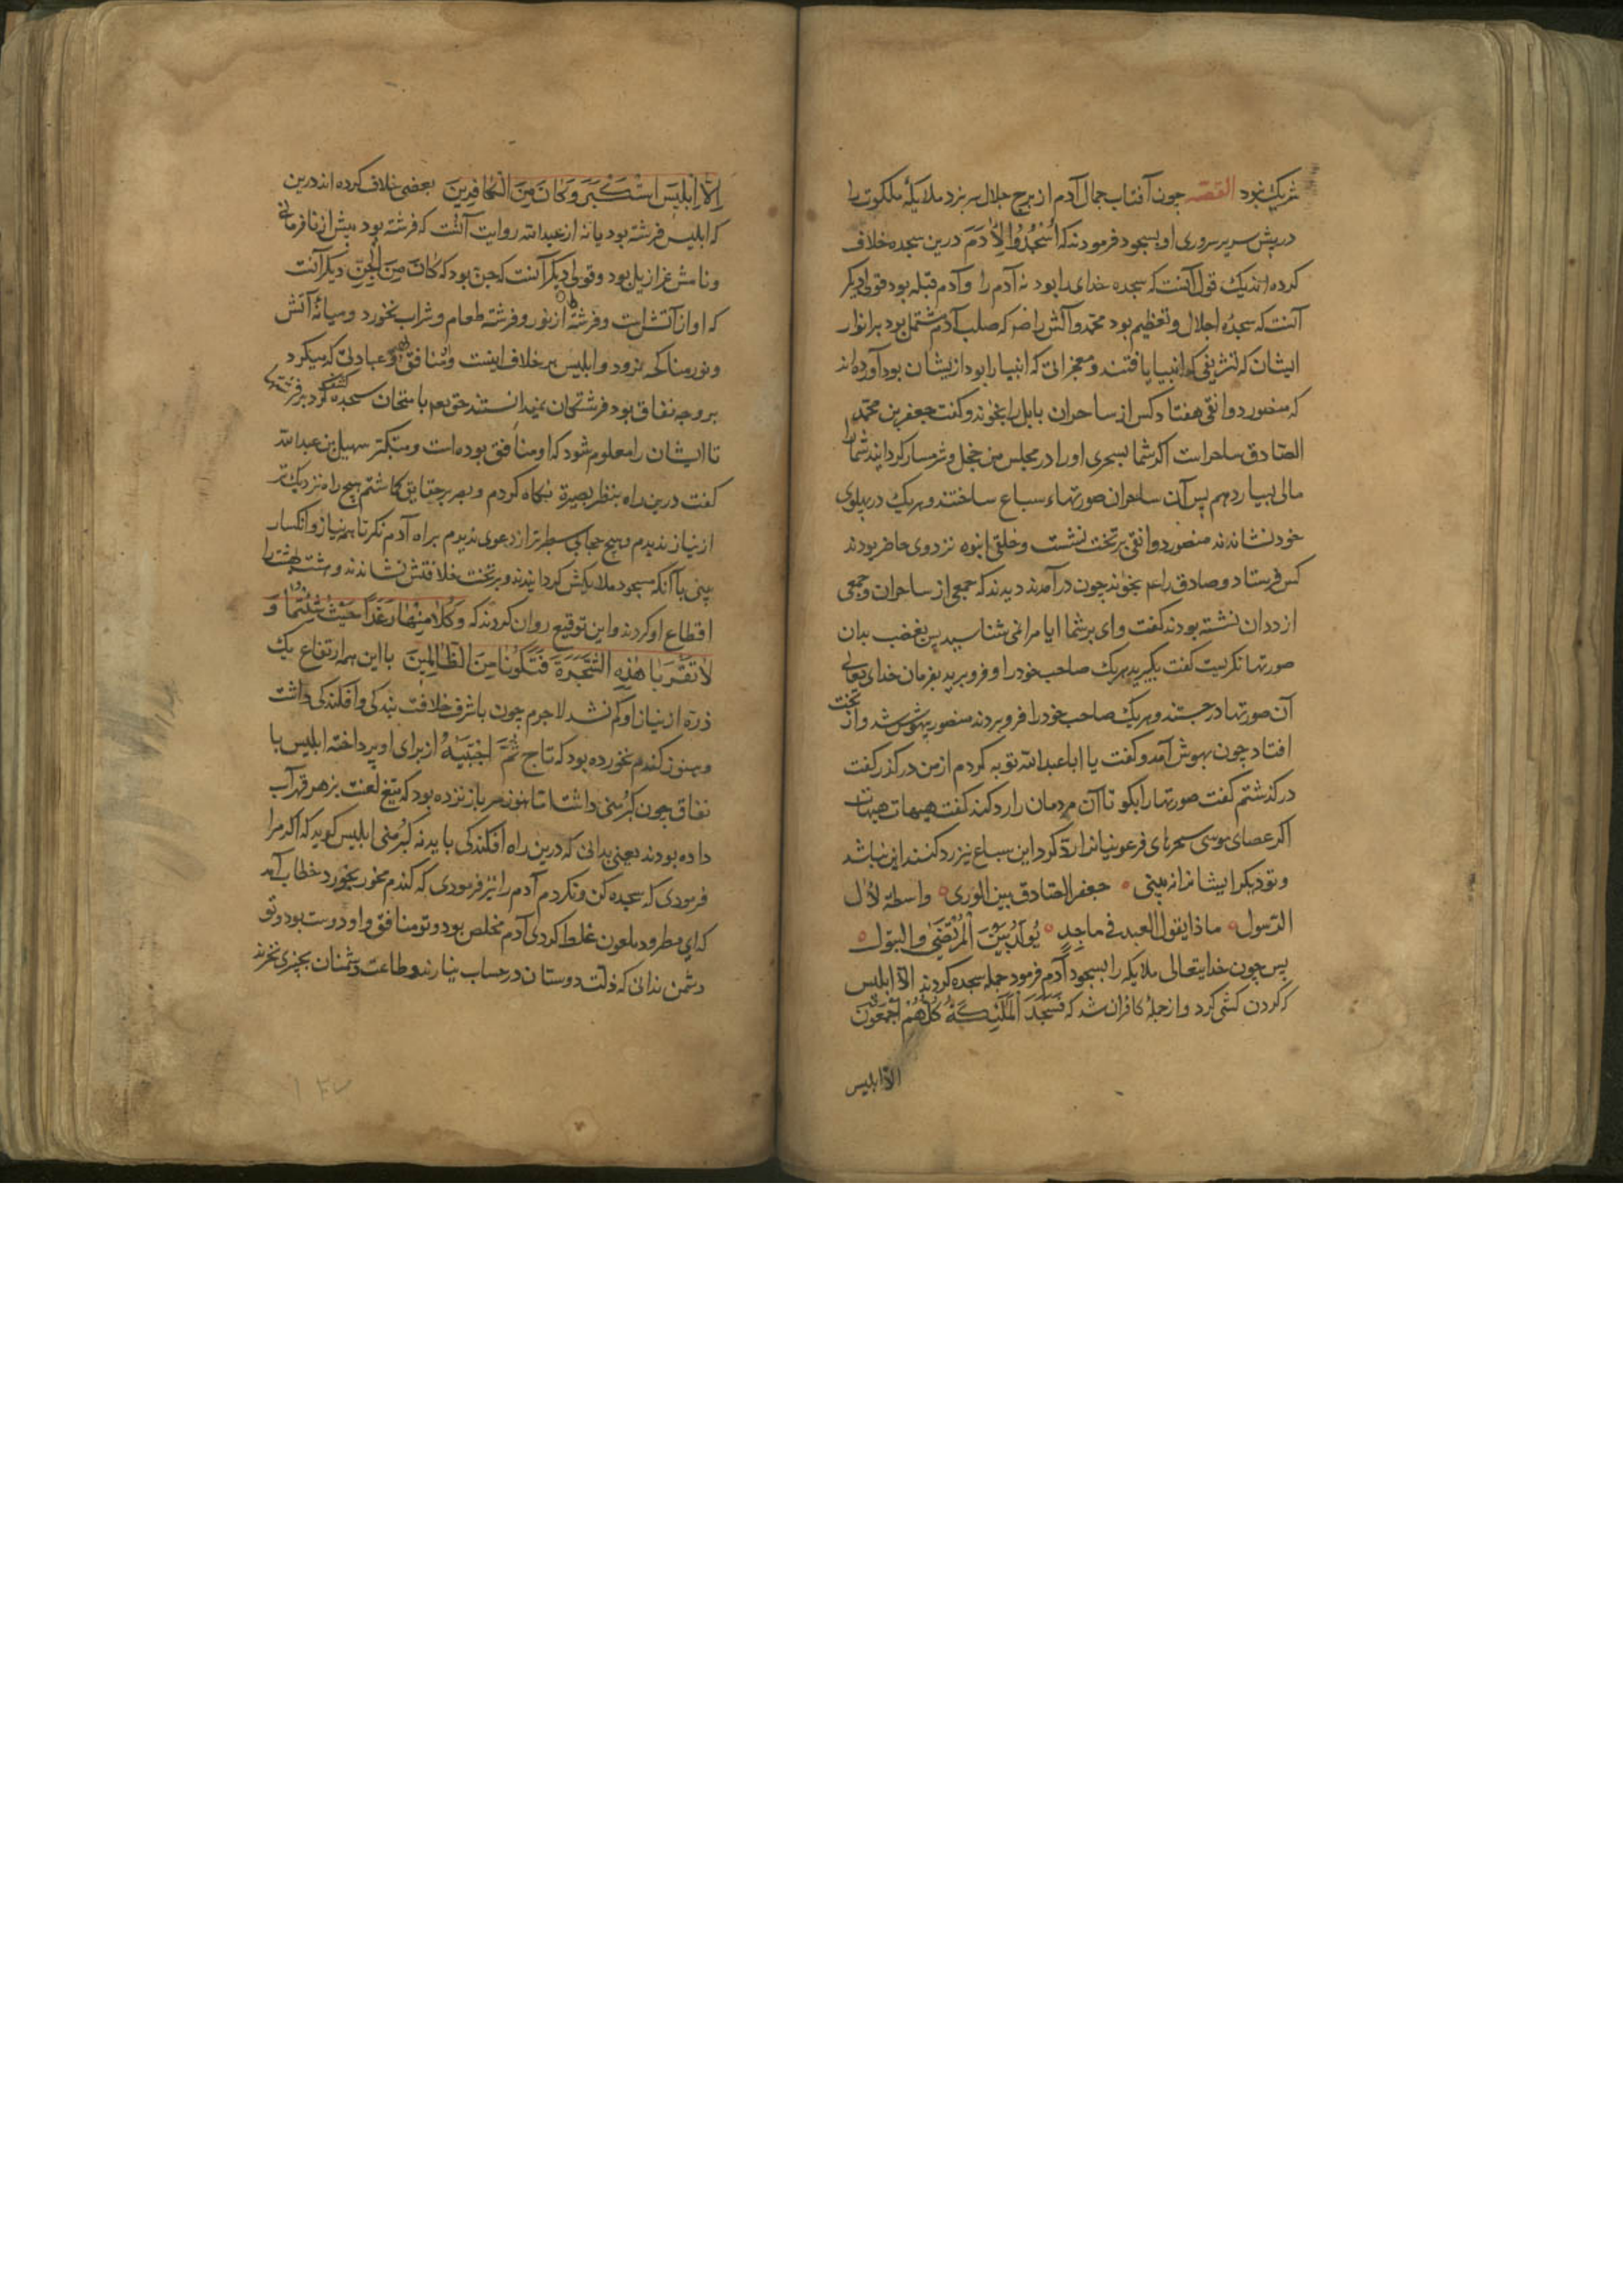 شریک نبود القصه چون آفتاب جمال آدم از برج جلال سر بزد ملایکهٔ ملکوت را
در پیش سریر سروری او بسجود فرمودند که اُسْجُدُوا لِاٰدَمَ درین سجده خلاف
کرده‌اند یک قول آنست که سجده خدای را بود نه آدم را و آدم قبله بود قولی دیکر
آنست که سجدهٔ اجلال و تعظیم بود محمد و آلش را که صلب آدم مشتمل بود بر انوار
ایشان که تشریفی که انبیا یافتند و معجزاتی که انبیا را بود از یشان بود آورده‌اند
که منصور دوانقی هفتاد کس از ساحران بابل را بخواند و کفت جعفر بن محمد
الصّادق ساحر است اکر شما بسحری او را در مجلس من خجل و شرمسار کردانید شما را
مالی بسیار دهم پس آن ساحران صورتهاء سباع ساختند و هریک در پهلوی
خود نشاندند منصور دوانقی بر تخت نشست و خلقی انبوه نزد وی حاضر بودند
کس فرستاد و صادق را عم بخواند چون درآمدند دیدند که جمعی از ساحران و جمعی
از ددان نشسته بودند کفت وای بر شما ایا مرا نمی شناسید پس بغضب بدان
صورتها نکریست کفت بکیرید هریک صاحب خود را و فرو برید بفرمان خدای تعالی
آن صورتها درجستند و هریک صاحب خود را فرو بردند منصور بیهوش شد و از تخت
افتاد چون بهوش آمد و کفت یا ابا عبدالله توبه کردم از من درکذر کفت
درکذشتم کفت صورتها را بکو تا آن مردمان را رد کنند کفت هیهات هیهات
اکر عصای موسی سحرهای فرعونیانرا رد کرد این سباع نیز رد کنند این نباشد
و تو دیکر ایشانرا نه بینی جعفر الصّادق بین الوری واسطهٔ لآل
الرّسول ماذا یقول العبد فی ماجدٍ یولد بین المرتضی و البتول
پس چون خدایتعالی ملایکه را بسجود آدم فرمود جمله سجده کردند الّا ابلیس
که کردن کشی کرد و از جملهٔ کافران شد که فَسَجَدَ الْمَلٰئِکَةُ کُلُّهُمْ اَجْمَعُونَ
الّا ابلیس
اِلّا اِبْلِیسَ اسْتَکْبَرَ وَ کَانَ مِنَ الْکَافِرِینَ بعضی خلاف کرده‌اند درین
که ابلیس فرشته بود یا نه از عبدالله روایت آنست که فرشته بود پیش از نافرمانی
و نامش عزازیل بود و قولی دیکر آنست که جن بود که کَانَ مِنَ الْجِنِّ دیکر آنست
که او از آتش است و فرشته از نور و فرشته طعام و شراب نخورد و میانهٔ آتش
و نور مناکحه نرود و ابلیس بر خلاف اینست و منافق و عبادتی که میکرد
بر وجه نفاق بود فرشتکان نمیدانستند حق تعم بامتحان سجده کشف کرد بر فرشتها
تا ایشان را معلوم شود که او منافق بوده است و متکبر سهیل بن عبدالله
کفت درین راه بنظر بصیرة نکاه کردم و بصر بر حقایق کاشتم هیچ راه نزدیک تر
از نیاز ندیدم و هیچ حجابی سطبرتر از دعوی ندیدم براه آدم نکر تا همه نیاز و انکسار
بینی با آنکه مسجود ملایکش کردانیدند و بر تخت خلافتش نشاندند و هشت بهشت را
اقطاع او کردند و این توقیع روان کردند که وَکُلَا مِنْهَا رَغَدًا حَیْثُ شِئْتُمَا وَ
لَا تَقْرَبَا هٰذِهِ الشَّجَرَةَ فَتَکُونَا مِنَ الظَّالِمِینَ با این همه ارتفاع یک
ذره از نیاز او کم نشد لاجرم چون با شرف خلافت بندکی و افکندکی داشت
و هنوز کندم نخورده بود که تاج ثُمَّ اجْتَبٰیهُ از برای او پرداخته ابلیس با
نفاق چون کبر منی داشت تا هنوز سر باز نزده بود که تیغ لعنت بزهر قهر آب
داده بودند یعنی بدانی که درین راه افکندکی باید نه کبر منی ابلیس کوید که اکر مرا
فرمودی که سجده کن و نکردم آدم را نیز فرمودی که کندم مخور بخورد خطاب آمد
که ای مطرود ملعون غلط کردی آدم مخلص بود و تو منافق و او دوست بود و تو
دشمن ندانی که ذلت دوستان در حساب نیارند و طاعت دشمنان بچیزی نخرند